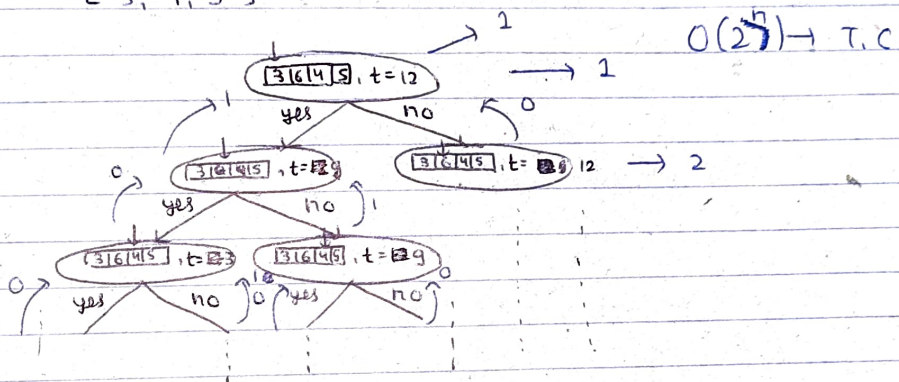 1
O(2^n) → T.C
3 6 4 5, t = 12 → 1
yes no
1 0
3 6 4 5, t = 9
3 6 4 5, t = 12 → 2
0
yes no 1
3 6 4 5, t = 3
3 6 4 5, t = 9
0 0
yes no 0 yes no